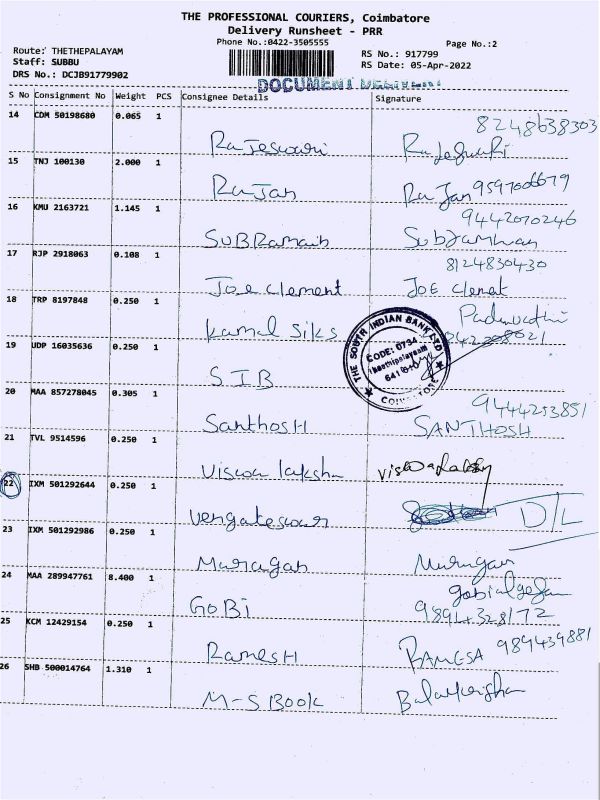 THE PROFESSIONAL COURIERS, Coimbatore
Delivery Runsheet - PRR
Phone No.:0422-3505555
Page No.:2
Route: THETHEPALAYAM
RS No.: 917799
Staff: SUBBU
RS Date: 05-Apr-2022
DRS No.: DCJB91779902
DOCUMENT
S No Consignment No Weight PCS Consignee Details Signature
14 CDM 50198680 0.065 1
8248638303
Rajeswari
15 TNJ 100130 2.000 1
Rajan Rajan 9597006679
16 KMU 2163721 1.145 1
9442070246
17 RJP 2918063 0.108 1
8124830430
Joe clement JOE
18 TRP 8197848 0.250 1
Kamal Siks
THE SOUTH INDIAN BANK LTD
CODE: 0734
COIMBATORE
19 UDP 16035636 0.250 1
SIB
20 MAA 857278045 0.305 1
9444253851
Santhosh SANTHOSH
21 TVL 9514596 0.250 1
22 IXM 501292644 0.250 1
D/L
23 IXM 501292986 0.250 1
Murugan Murugan
24 MAA 289947761 8.400 1
GOBi 9894328172
25 KCM 12429154 0.250 1
Ramesh RAMESA 989439881
26 SHB 500014764 1.310 1
M-S Book Balakrishna